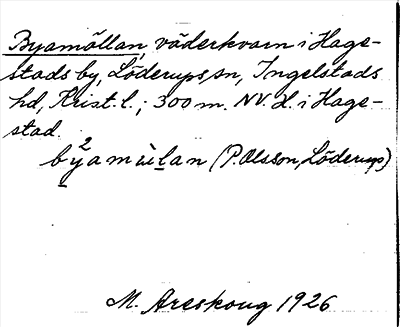 Byamöllan, väderkvarn i Hage-
stads by, Löderups sn, Ingelstads
hd, Krist. l.; 300 m. NV. H. i Hage-
stad.
bỵ²amùḷan (P. Olsson, Löderup)
M. Areskoug 1926